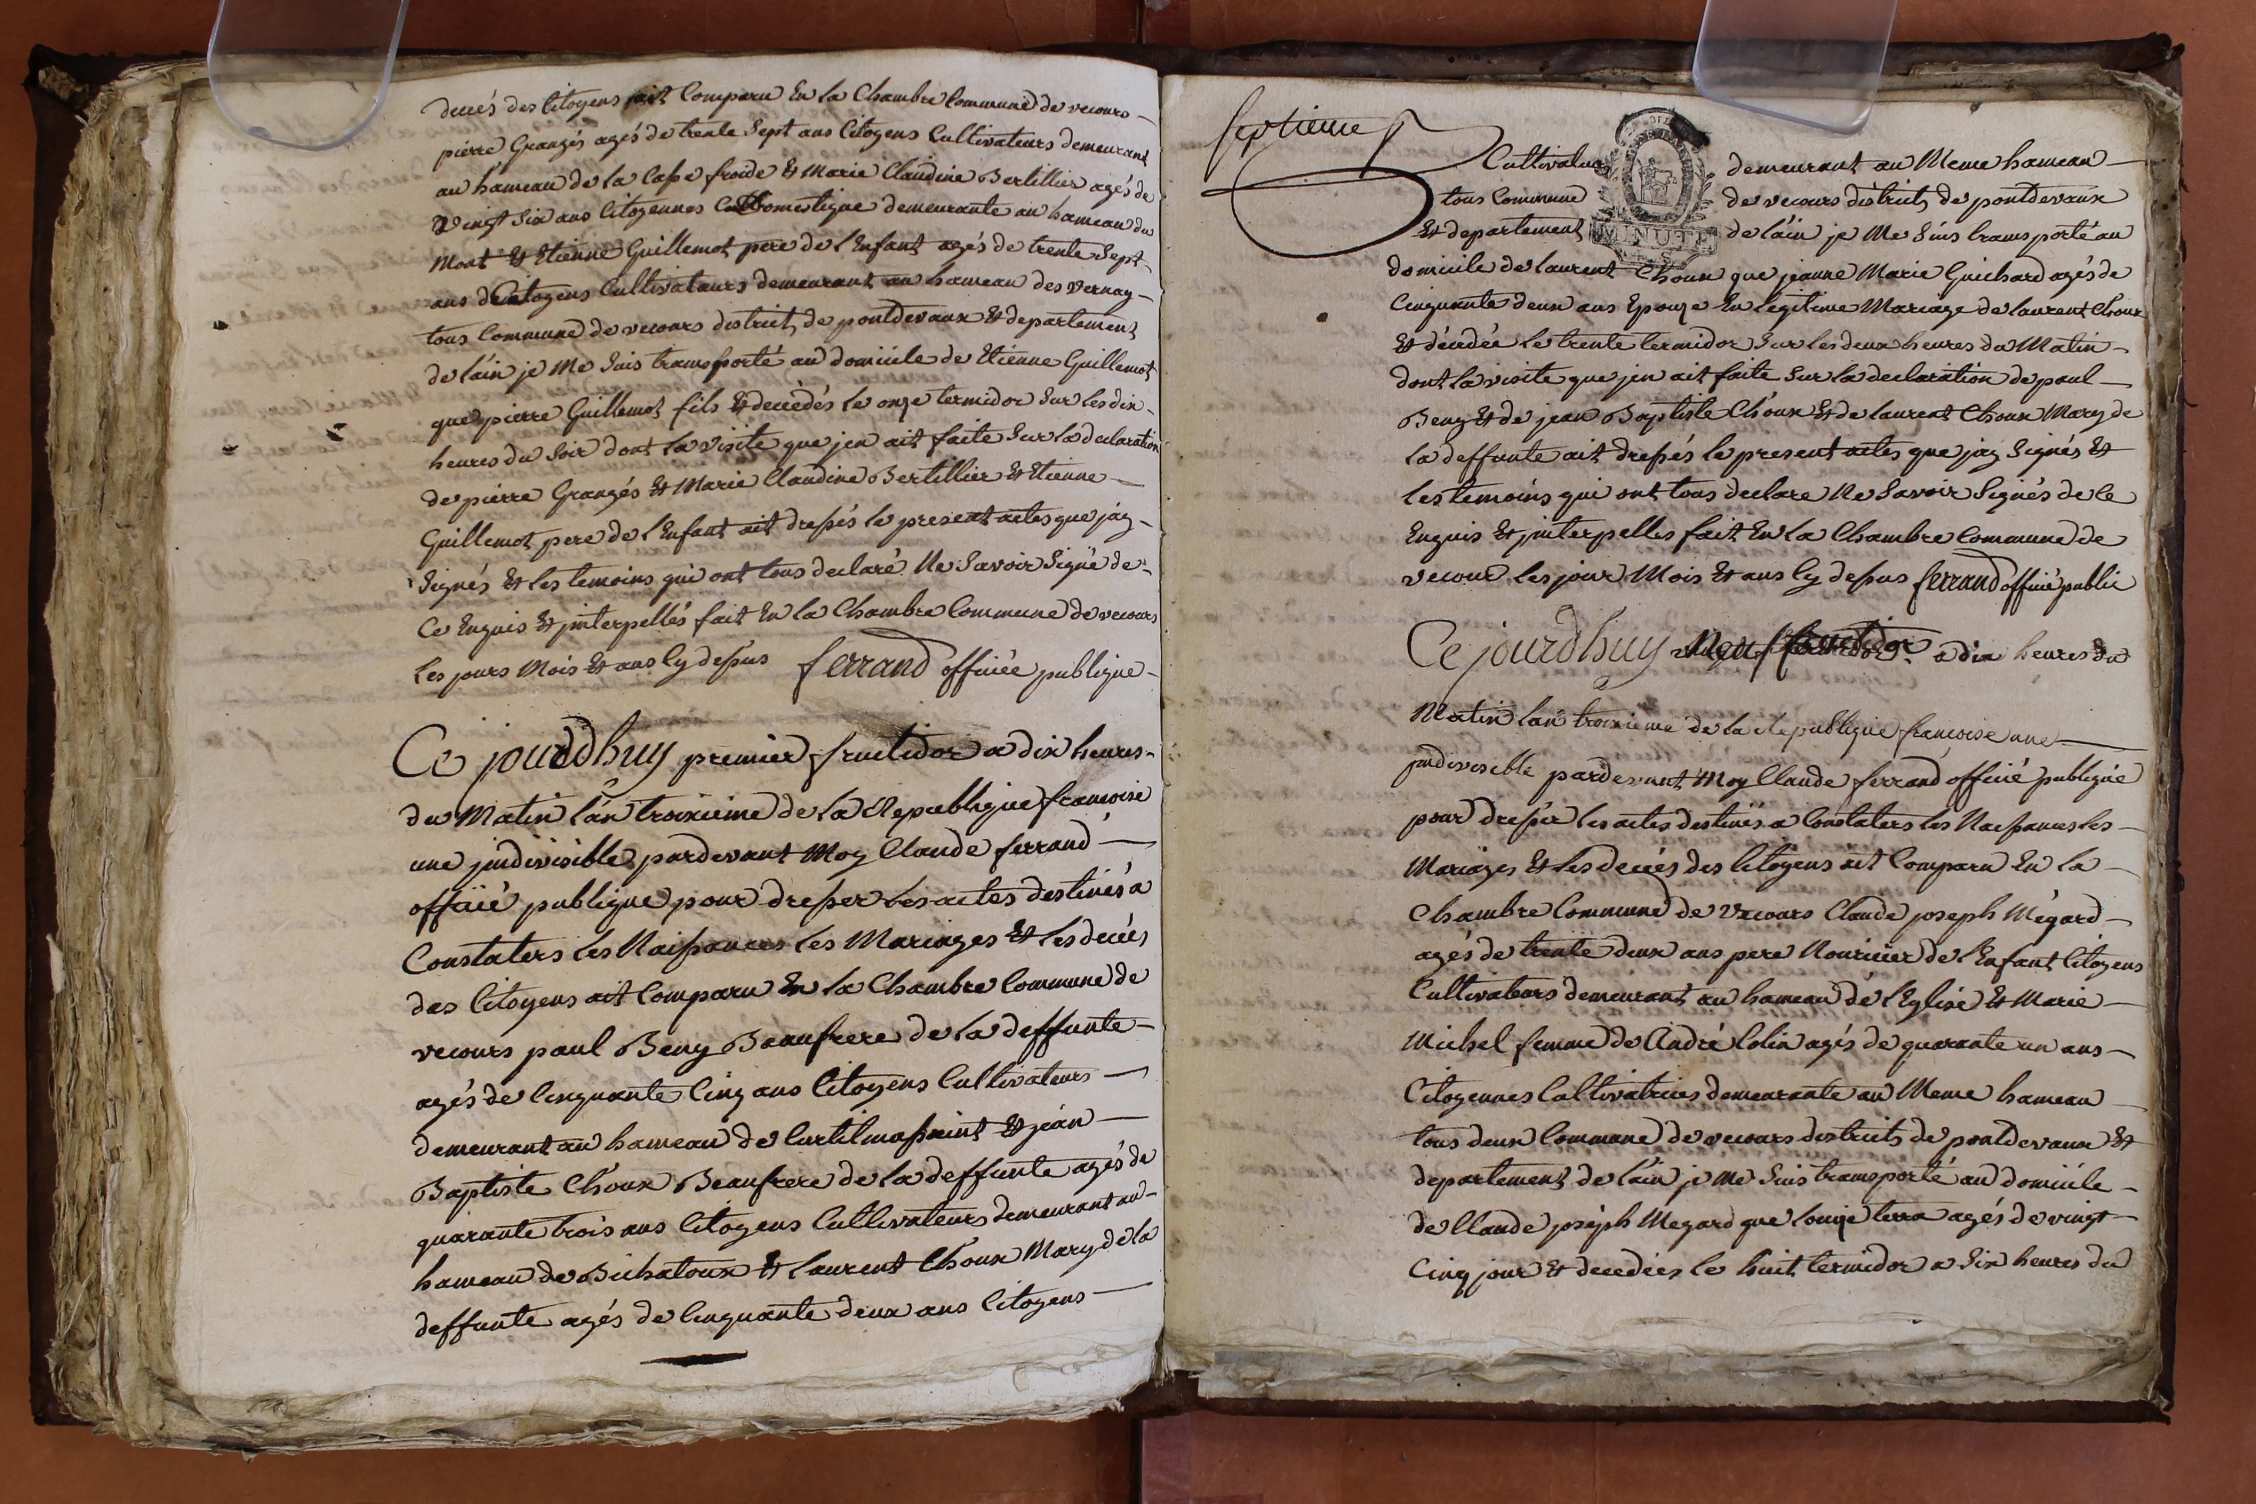 deccés des Citoyens ait Comparu En la Chambre Commune de vecours
pierre Grangés agés de trente Sept ans Citoyens Cultivateurs demeurant
au hameau de la Case froide Et Marie Claudine Bertillier agés de
vingt Six ans Citoyennes Domestique demeurante au hameau du
Mont Et Etienne Guillemot pere de l'Enfant agés de trente Sept
ans Citoyens Cultivateurs demeurant au hameau des vernay
tous Commune de vecours district de pontdevaux Et departement
de l'ain je Me Suis transporté au domicile de Etienne Guillemot
que pierre Guillemot fils Et deccédés le onze termidor Sur les dix
heures du Soir dont la visite que jen ait faite Sur la declaration
de pierre Grangés Et Marie Claudine Bertillier Et Etienne
Guillemot pere de l'Enfant ait dressés le present actes que jay
Signés Et les temoins qui ont tous declaré Ne Savoir Signé de
Ce Enquis Et jnterpellés fait En la Chambre Commune de vecours
les jours Mois Et ans Cy dessus ferrand officiée publique
Ce jourdhuy premier fructidor a dix heures
du Matin l'an troixieme de la Republique francoise
une jndivisible pardevant Moy Claude ferrand
officié publique pour dresser les actes destinés a
Constaters les Naissances les Mariages Et les deccés
des Citoyens ait Comparu En la Chambre Commune de
vecours paul Beny Beaufrere de la deffunte
agés de Cinquante Cinq ans Citoyens Cultivateurs
demeurant au hameau de Curtilmassaint Et jean
Baptiste Choux Beaufrere de la deffunte agés de
quarante trois ans Citoyens Cultivateurs demeurant au
hameau de Bichatoux Et laurent Choux Mary de la
deffunte agés de Cinquante deux ans Citoyens
septieme
Cultivateurs demeurant au Meme hameau
tous Commune de vecours district de pontdevaux
Et departement de l'ain je Me Suis transporté au
MINUTE
domicile de laurent Choux que jeanne Marie Guichard agés de
Cinquante deux ans Epouze En legitime Mariage de laurent Choux
Et décédée le trente termidor Sur les deux heures du Matin
dont la visite que jen ait faite Sur la declaration de paul
Beny Et de jean Baptiste Choux Et de laurent Choux Mary de
la deffunte ait dressés le present actes que jay Signés Et
les temoins qui ont tous declare Ne Savoir Signés de Ce
Enquis Et jnterpellés fait En la Chambre Commune de
vecour les jour Mois Et ans Cy dessus ferrand officié public
Ce jourdhuy a dix heures du
Matin l'an troixieme de la Republique francoise une
jndivisible pardevant Moy Claude ferrand officié publique
pour dresser les actes destinés a Constaters les Naissances les
Mariages Et les deccés des Citoyens ait Comparu En la
Chambre Commune de vecours Claude joseph Mégard
agés de trente deux ans pere Nouricier de l'Enfant Citoyens
Cultivateurs demeurant au hameau de l'Eglise Et Marie
Michel femme de André Colin agés de quarante un ans
Citoyennes Cultivatrices demeurante au Meme hameau
tous deux Commune de vecours districts de pontdevaux Et
departement de l'ain je Me Suis transporté au domicile
de Claude joseph Megard que Louise terra agés de vingt
Cinq jour Et decedées le huit termidor a Six heures du